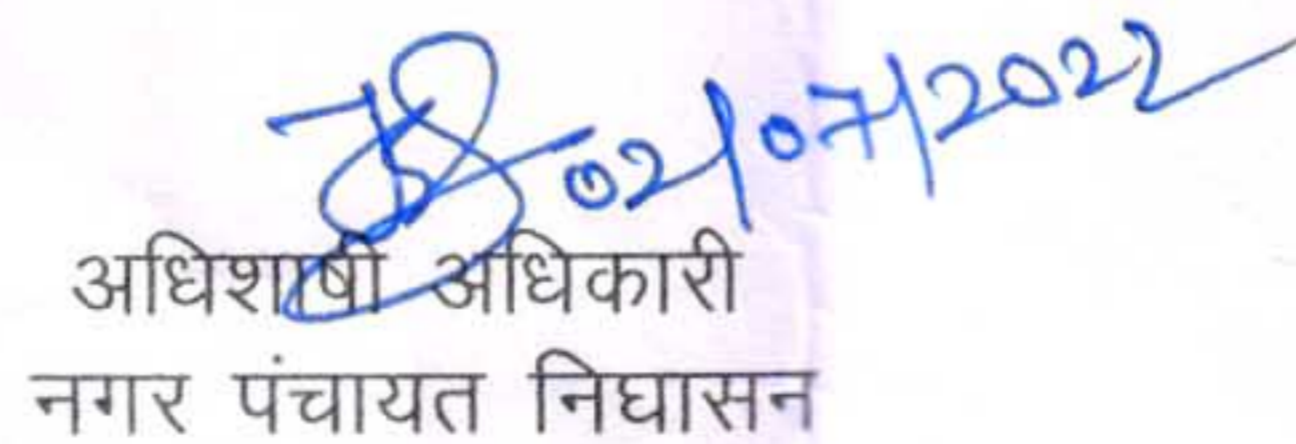 02/07/2022
अधिशाषी अधिकारी
नगर पंचायत निघासन